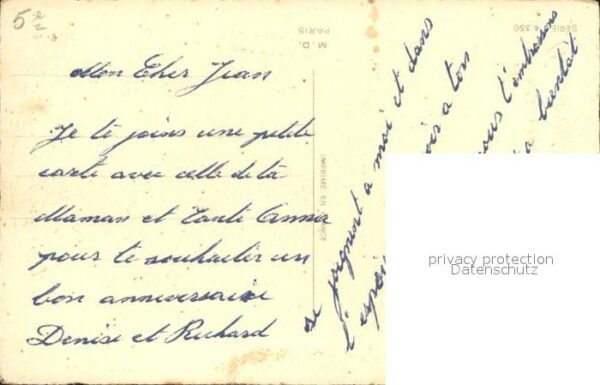 5
M. D.
PARIS
SERIE 4 550
Mon Cher Jean
Je te joins une petite
carte avec celle de ta
Maman et Tante Annie
pour te souhaiter un
bon anniversaire
Denise et Richard
se joignent a moi et dans
l'espoir
a ton
nous t'embrassons
a bientôt
IMPRIME EN FRANCE
privacy protection
Datenschutz